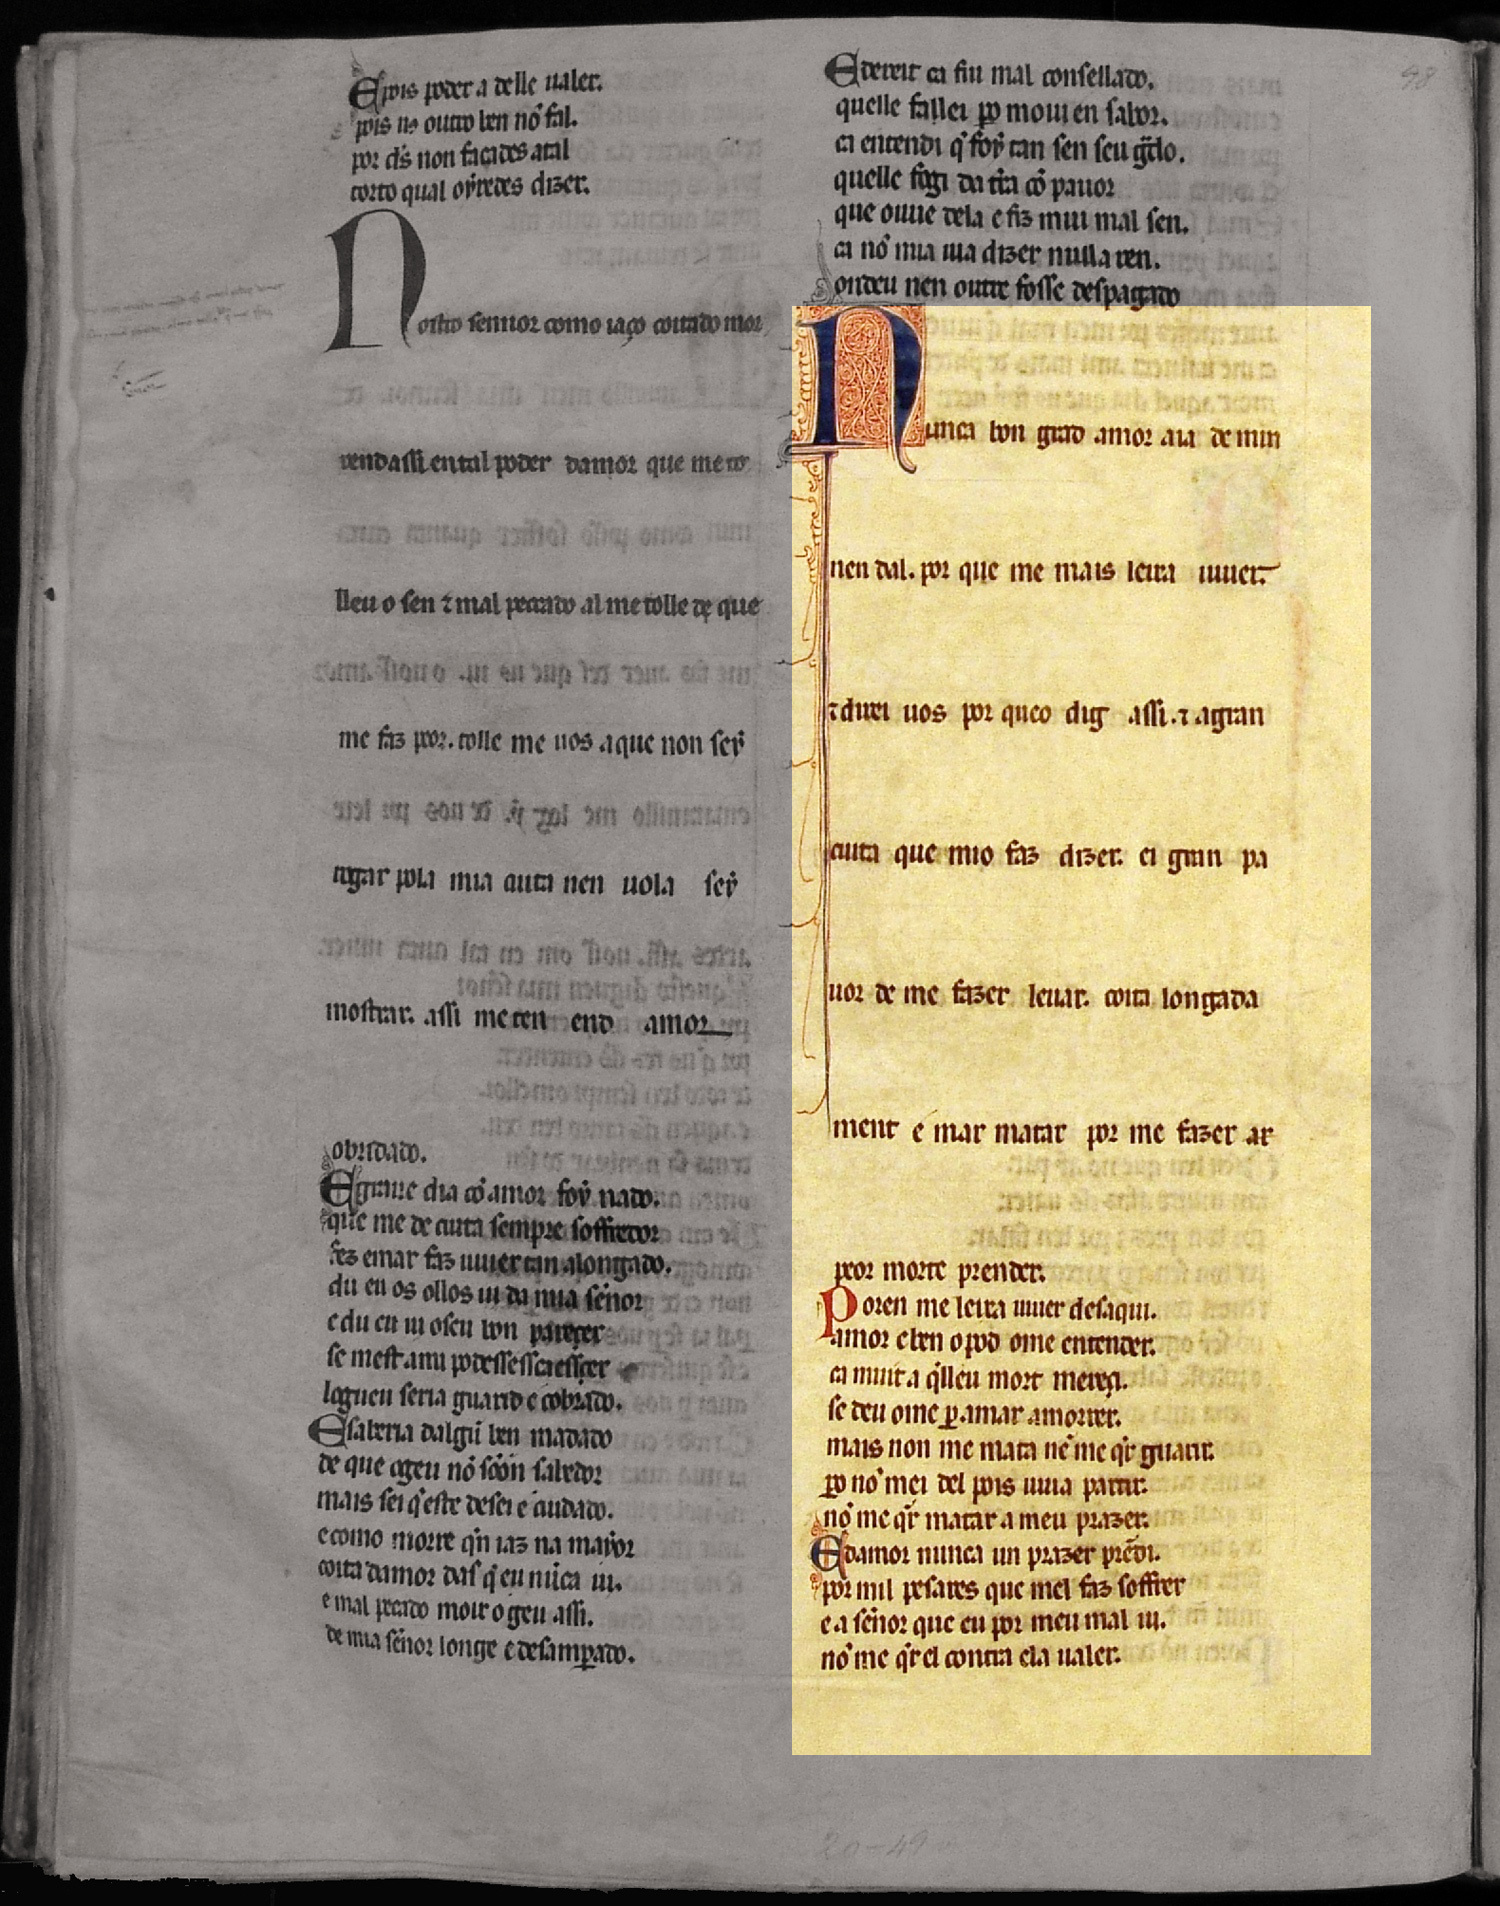 Epois poder a de lle ualer.
pois në outro ben nõ fal.
por d̃s non façades atal
torto qual oỹredes dizer.
Nostro sennor como iaço coitado mor
rend assi en tal poder damor que me to
lleu o sen ⁊ mal peccado al me tolle de que
me faz peor. tolle me uos a que non seỹ
rogar pola mia cuita nen uola seỹ
mostrar. assi me ten end amor
obridado.
Egraue dia cõ amor foỹ nado.
que me de cuita sempre soffredor
fez e mar faz uiuer tan alongado.
du eu os ollos ui da mia sẽnor
e du eu ui o seu bon pareçer
se mest a mi podessescaesçer
logueu seria guarid e cobrado.
E saberia dalgũ ben mãdado
de que ogeu nõ sõõn sabedor
mais sei q̃ este desei e cuidado.
e como morre q̃n iaz na maỹor
coita damor das q̃ eu nũca ui.
e mal pecado moir ogeu assi.
de mia sẽnor longe e desamꝑado.
E dereit ei ca fiu mal consellado.
quelle fallei ꝑo moui en sabor.
ca entendi q̃ foỹ tan sen seu g̃do.
quelle fogi da t̃ra cõ pauor
que ouue dela e fiz mui mal sen.
ca nõ mia uia dizer nulla ren.
ondeu nen outre fosse despagado
Nunca bon grad amor aia de min
nen dal. por que me mais leixa uiuer.
⁊ direi uos por queo dig assi. ⁊ a gran
cuita que mio faz dizer. ei gran pa
uor de me fazer leuar. coita longada
ment e mar matar por me fazer ar
peor morte prender.
Poren me leixa uiuer des aqui.
amor e ben o pod ome entender.
ca muit a q̃lleu mort mereçi.
se deu ome ꝑ amar a morrer.
mais non me mata nẽ me q̃r guarir.
ꝑo nõ mei del pois uiua partir.
nõ me q̃r matar a meu prazer.
E damor nunca un prazer prẽdi.
por mil pesares que mel faz soffrer
e a sẽnor que eu por meu mal ui.
nõ me q̃r el contra ela ualer.